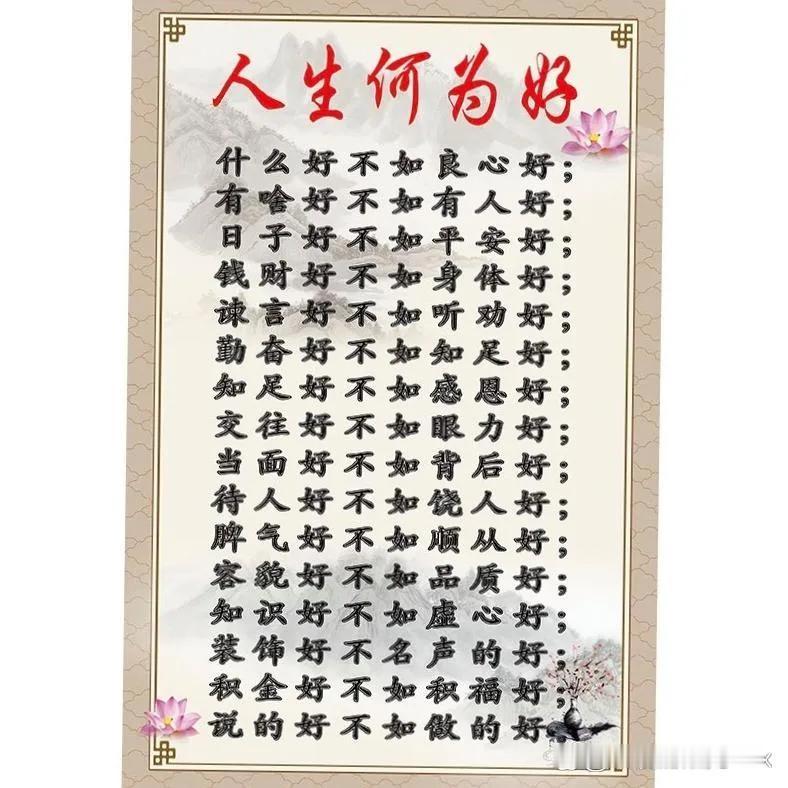 人生何为好
什么好不如良心好；
有啥好不如有人好；
日子好不如平安好；
钱财好不如身体好；
谏言好不如听劝好；
勤奋好不如知足好；
知足好不如感恩好；
交往好不如眼力好；
当面好不如背后好；
待人好不如饶人好；
脾气好不如顺从好；
容貌好不如品质好；
知识好不如虚心好；
装饰好不名声的好；
积金好不如积福好；
说的好不如做的好